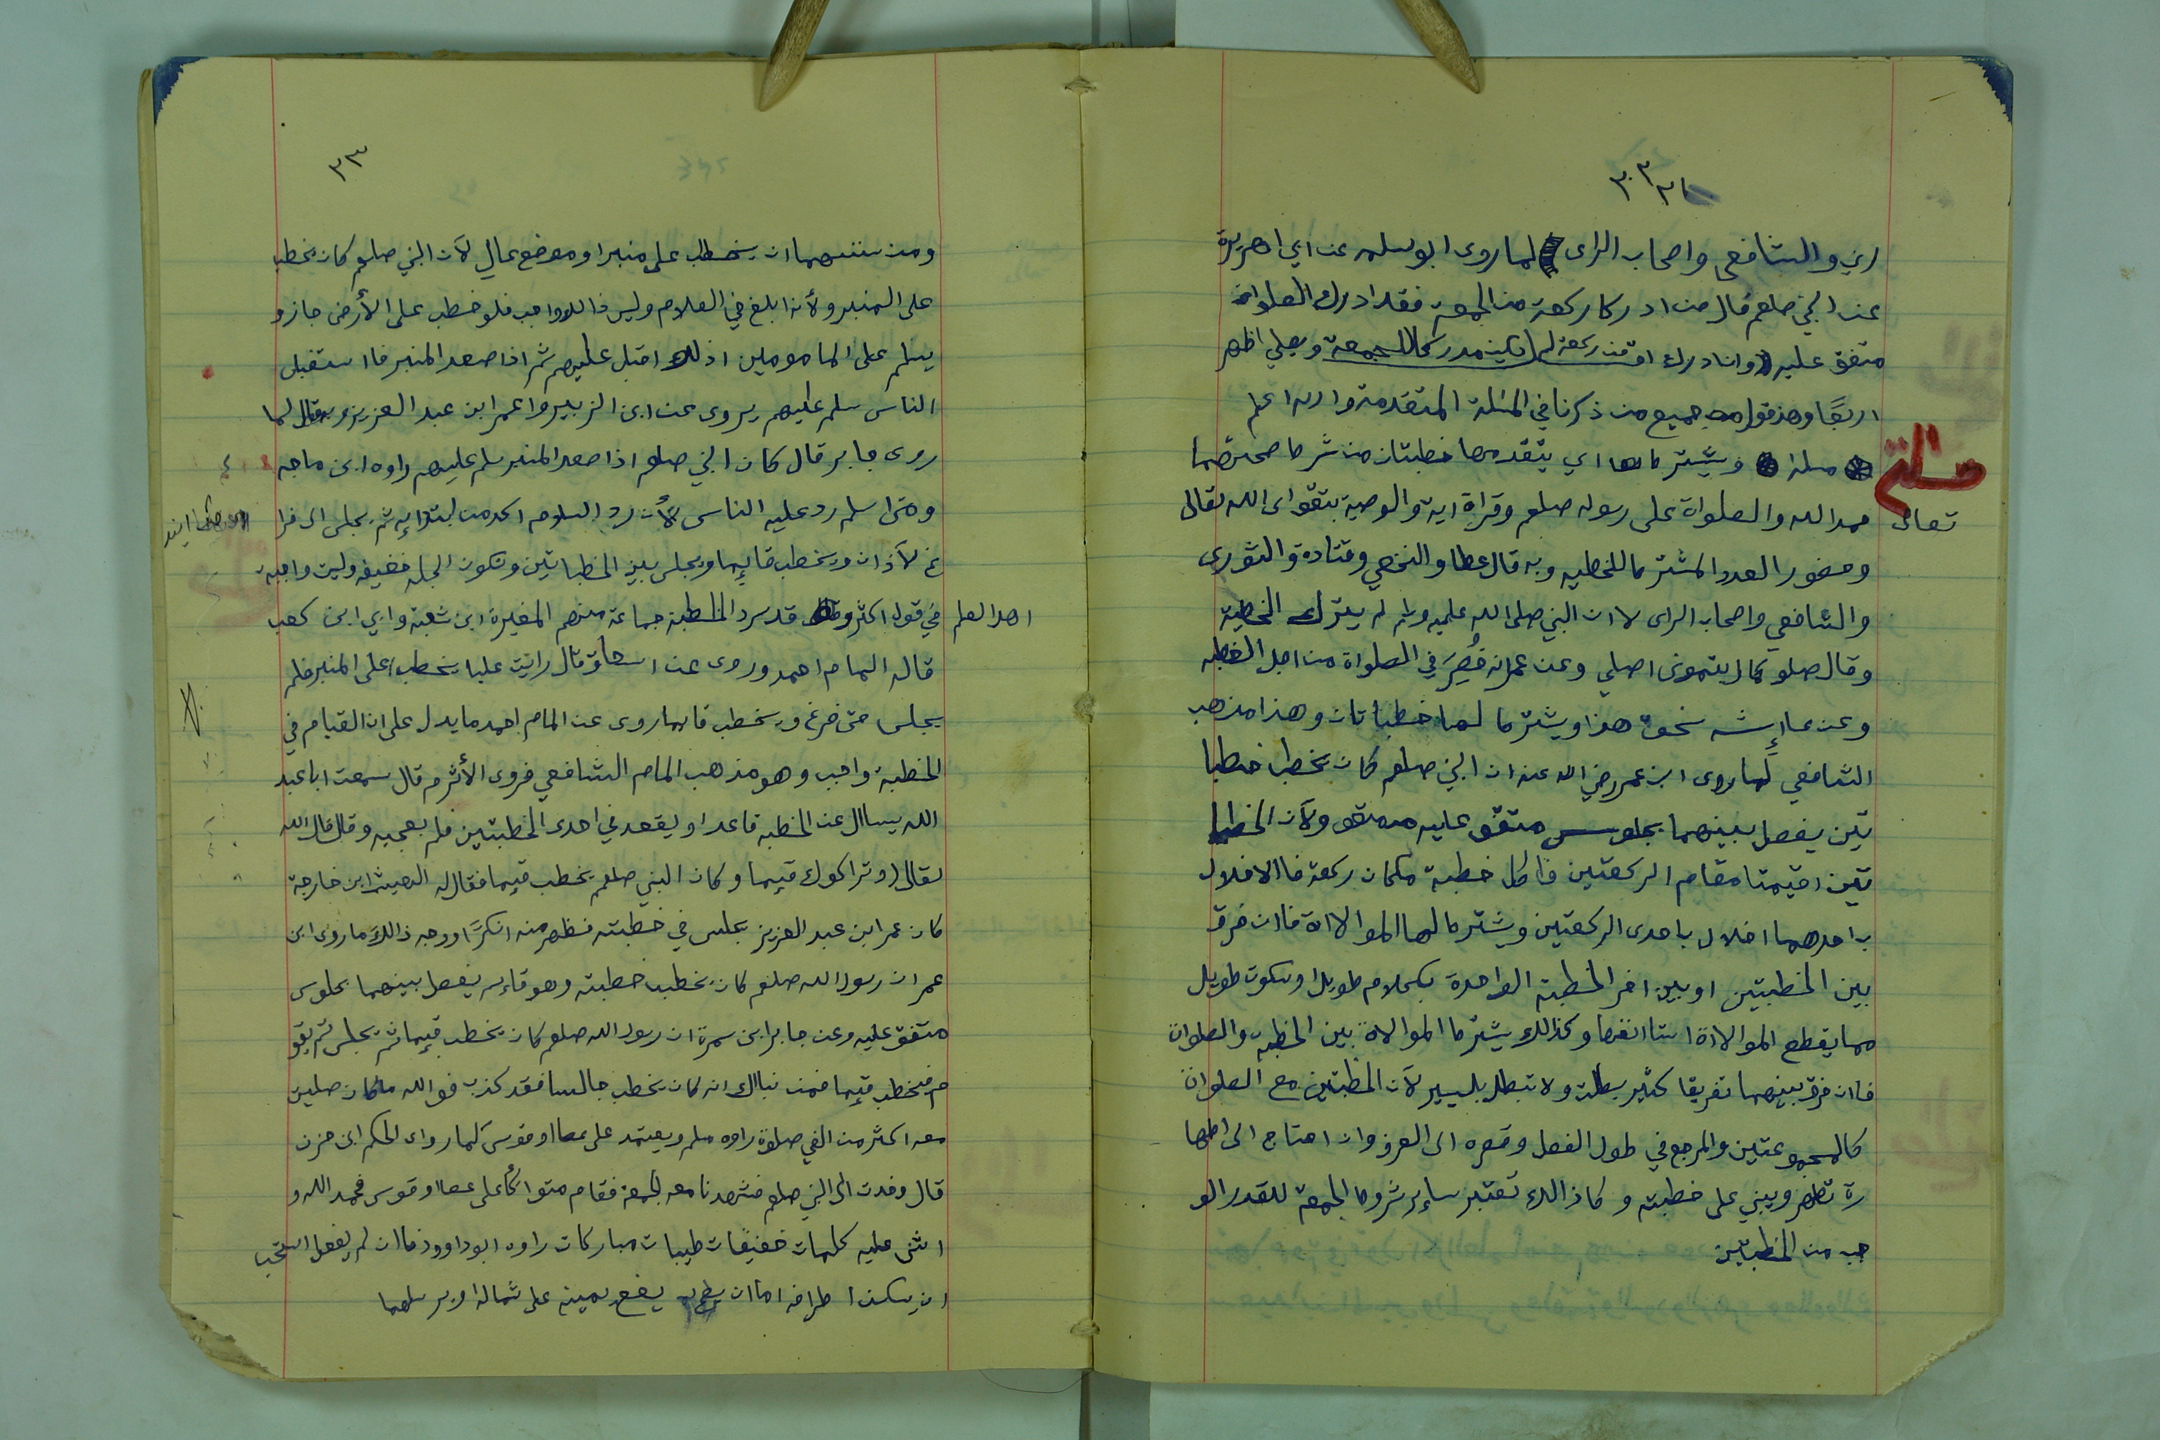 ٣٢
راي والشافعي واصحاب الراى لما روى ابو سلمه عن ابي اهريرة
عن النبي صلعم قال من ادركا ركعة من الجمعة فقد ادرك الصلواة
متفق عليه وانادرك اقتن ركعة لم يكن مدركا للجمعة ويصلي اظهر
اربعًا وهذقول جميع من ذكرنا في المئلة المتقدمة والله اعلم
مسئلة
مسلة ويشترطلها اي يتقدمها خطبتان من شرط صحتهما
حمد الله والصلواة على رسوله صلعم وقراة اية والوصية بتقواى الله تعالى
تعالى
وحضور العدد المشترط للخطبه وبه قال عطا والنخعي وقتادة والثورى
والشافعي واصحاب الراى لاان النبي صلى الله عليه وسلم لم يترك الخطبة
وقال صلو كما رايتمونى اصلي وعن عمرانه قُصِرَ في الصلواة من اجل الخطبه
وعن عاإشه نحو هذا ويشترط لها خطباتان وهذا مذهب
الشافعي لَما روى ابن عمر رضي الله عنه ان النبي صلعم كان يخطب خطبا
تين يفصل بينهما بجلوس متفق عليه ولآن الخطبا
تين اقيمتا مقام الركعتين فاكل خطبة مكان ركعة فاالاخلال
باحدهما اخلال باحدى الركعتين ويشترط لها الموالااة فاان فرق
بين الخطبتين او بين اخر الخطبة الواحدة بكلام طويل او سكوت طويل
مما يقطع الموالااة استاانفها وكذالك يشترط الموالاة بين الخطبه والصلواة
فاان فرق بينهما تفريقا كثير بطلت ولا تبطل بليسير لآن الخطبتين مع الصلواة
كالمجموعتين والمرجع في طول الفصل وقصره الى العرف وان احتاج الى اطها
رة تطهر ويبني على خطبته وكاذالك تعتبر ساإر شروط الجمعة للقدر الو
جب من الخطبتين
٣٣
ومن سننهما ان يخطب على منبر او موضع عالي لآن النبي صلعم كان يخطب
على المنبر ولأنه ابلغ في العلام وليس ذالك واجب فلو خطب على الأرض جاز و
يسلم على الماموميين اذلك اقبل عليهم ثم اذا صعد المنبر فاا ستقبل
الناس سلم عليهم يروى عن ابن الزبير وا عمر ابن عبد العزيز وبه قال لما
روى جابر قال كان النبي صلعم اذا صعد المنبر سلم عليهم راوه ابن ماجه
ومتا سلم رد عليه الناس لأن رد السلام اكد من ابتدايه ثم يجلس الى فرا
غ لآذان ويخطب قايما ويجلس بين الخطباتين وتكون الجلسه خفيفه وليت واجبه
اهل العلم
في قول اكثر وقد سرد الخطبة جماعة منهم المغيرة ابن شعبة وابي ابن كعب
قاله المام احمد وروى عن اسحاق قال رايت عليا يخطب على المنبر فلم
يجلس حتى فرغ ويخطب قايما روى عن المام احمد ما يدل على ان القيام في
الخطبة واجب وهو مذهب المام الشافعي فروى الأثرم قال سمعت ابا عبد
الله يساال عن الخطبه قاعدا او يقعد في احدى الخطبتين فلم يعجبه وقال قال الله
تعالى وتراكوك قيما وكان النبي صلعم يخطب قيما فقال له الهيثم ابن خارجة
كان عمر ابن عبد العزيز يجلس في خطبته فظهر منه انكرًا ووجه ذالك ما روى ابن
عمر ان رسول الله صلعم كان يخطب خطبته وهو قاءم يفصل بينهما بجلوس
متفق عليه وعن جابر ابن سمرة ان رسول الله صلعم كان يخطب قيما ثم يجلس ثم يقو
م فيخطب قيما فمن نباك انه كان يخطب جالسا فقد كذب فو الله ما كان صلين
معه اكثر من الفي صلوة راوه مسلم ويعتمد على عصاا وقوس لما رواى الحكم ابن حزن
قال وفدت الى النبي صلعم فشهدنا معه الجمعة فقام متواكأ على عصا او قوس فحمد الله و
اثنى عليه كلمات خفيفات طيبات مباركات راوه ابو داوود فاان لم يفعل استحب
ان يسكن اطرافه اماان يضع يمينه على شماله او يرسلهما